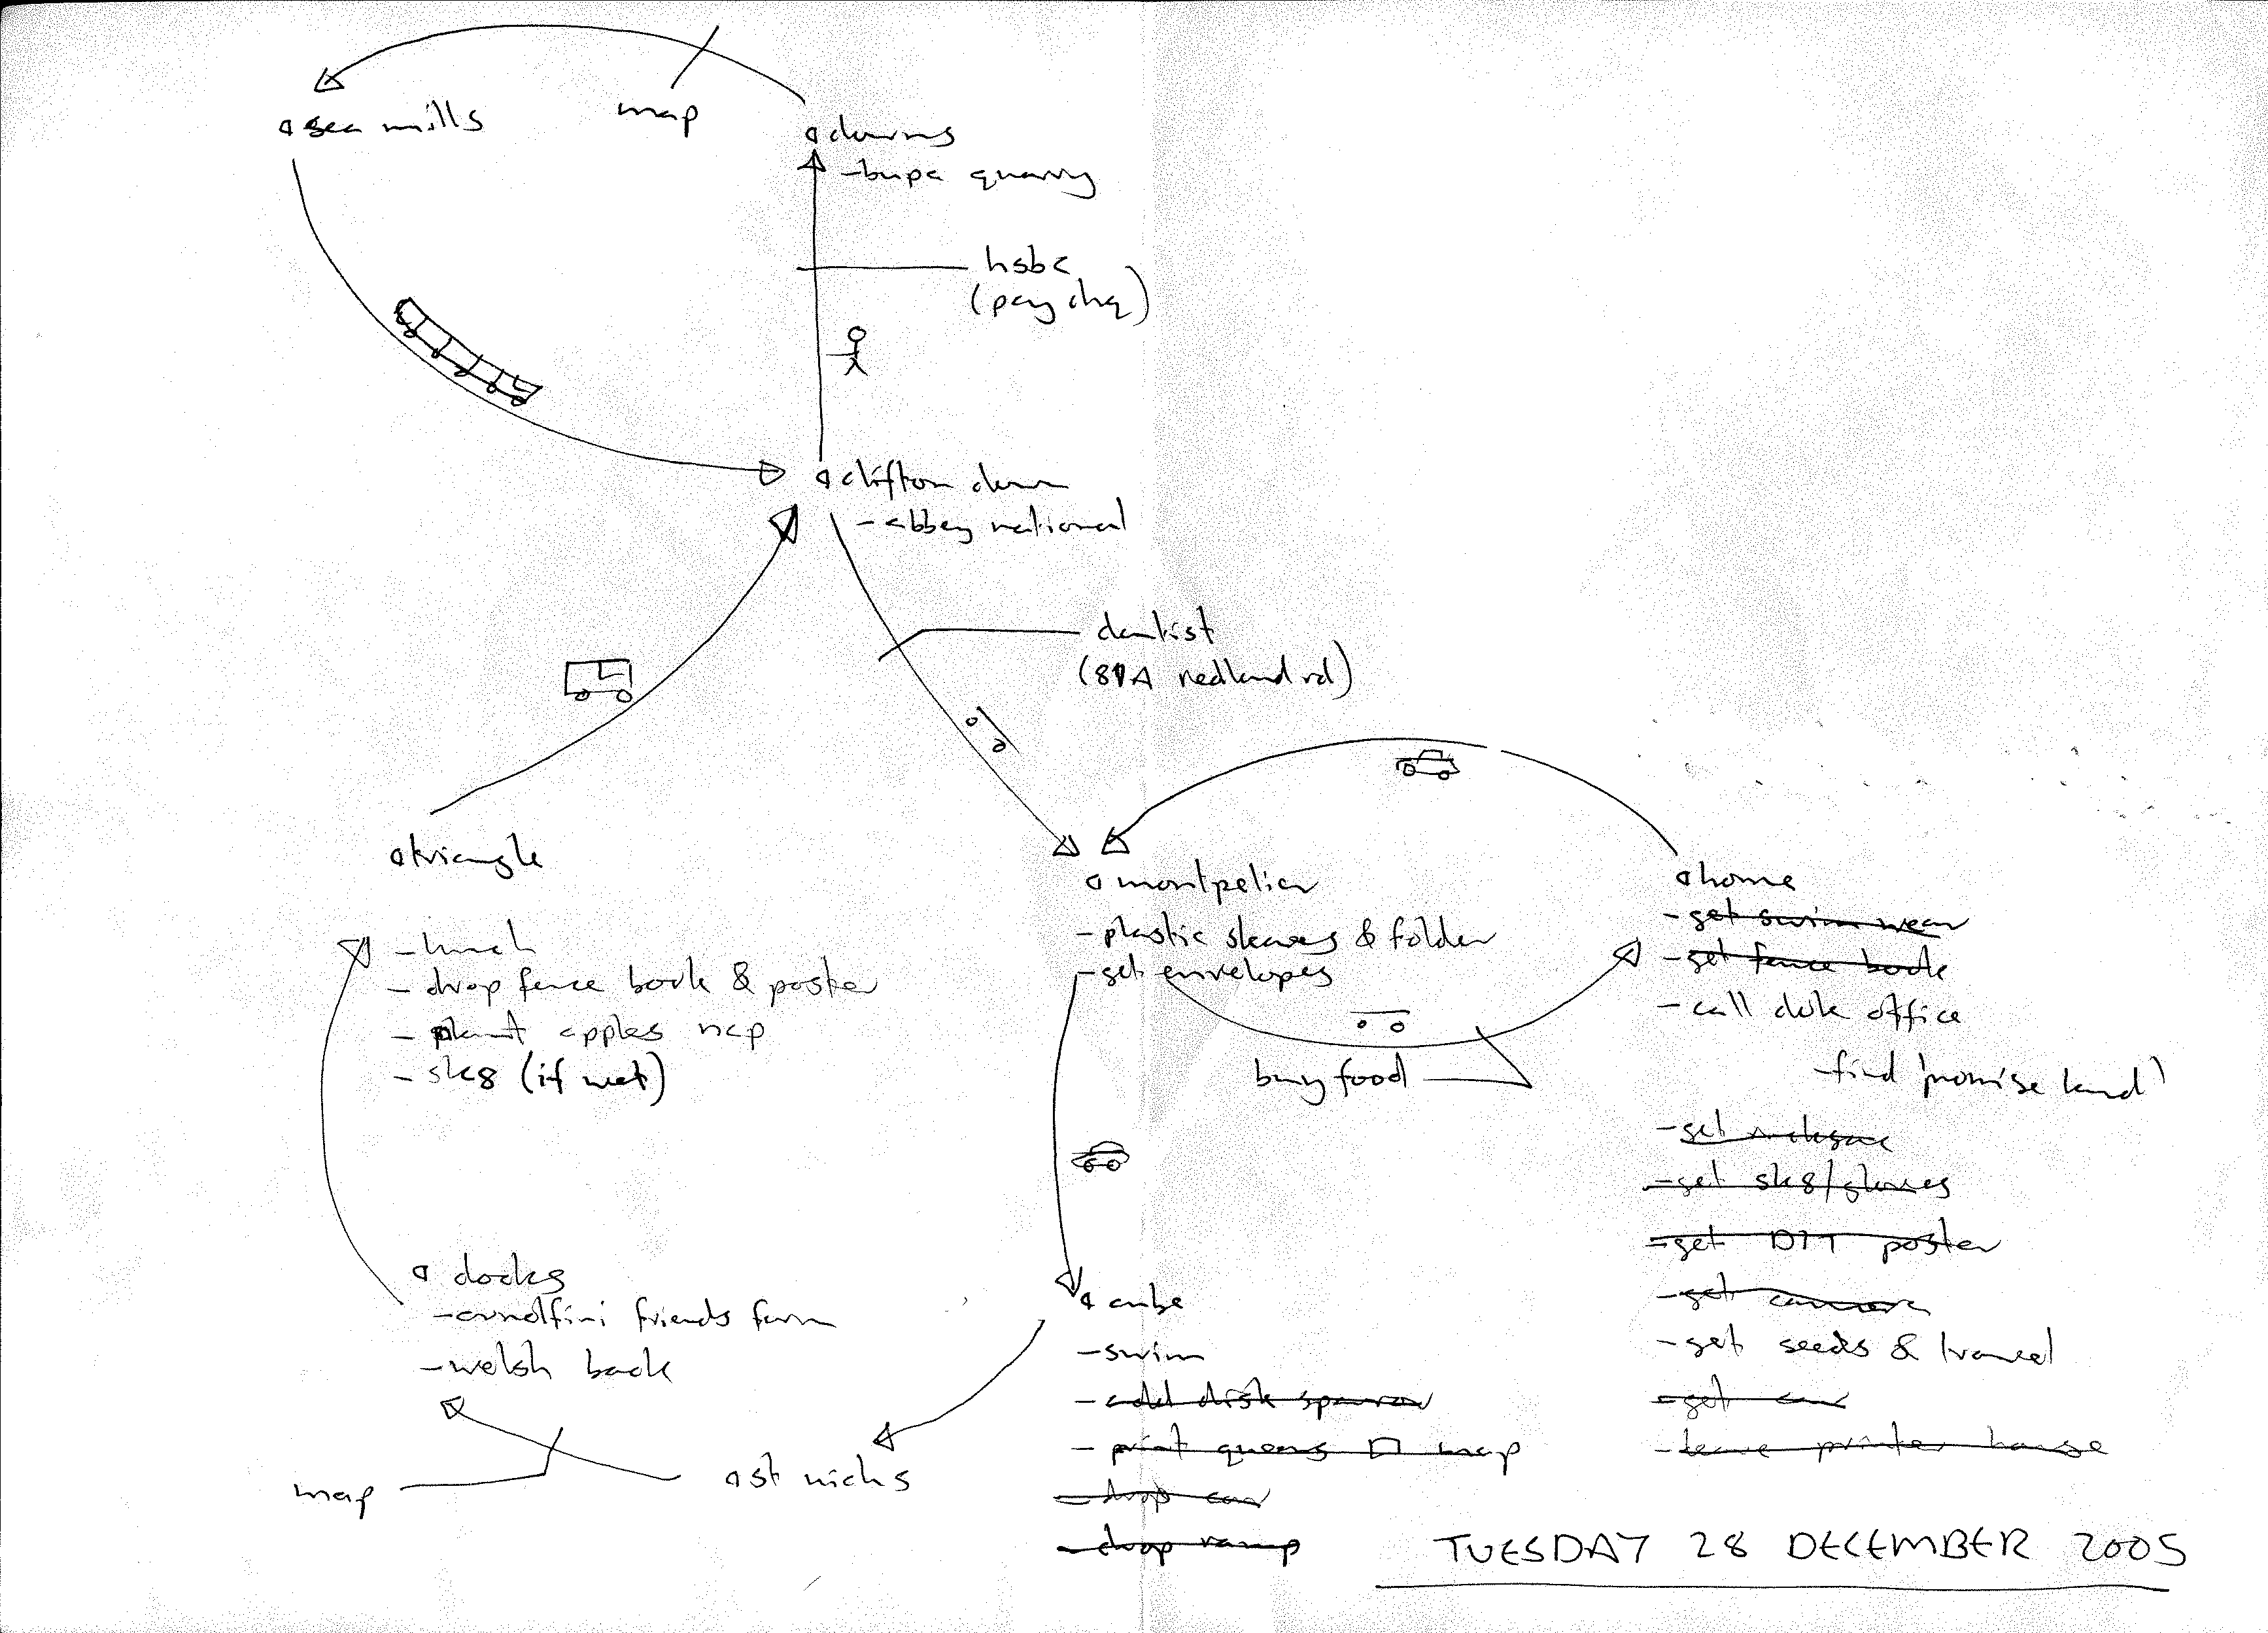 sea mills
map
downs
- bupa quarry
hsbc
(pay chq)
clifton down
- abbey national
dentist
(81A redland rd)
triangle
- lunch
- drop fence book & poster
- plant apples ncp
- sk8 (if wet)
montpelier
- plastic sleaves & folder
- get envelopes
buy food
home
- get swim wear
- get fence book
- call duk office
- find 'promise land'
- get
- get sk8/gloves
- get poster
- get camera
- get seeds & trowel
- get car
- leave printer house
docks
- arnolfini friends form
- welsh back
map
st nichs
cube
- swim
- add disk
- print queens □ map
- drop car
- drop ramp
TUESDAY 28 DECEMBER 2005